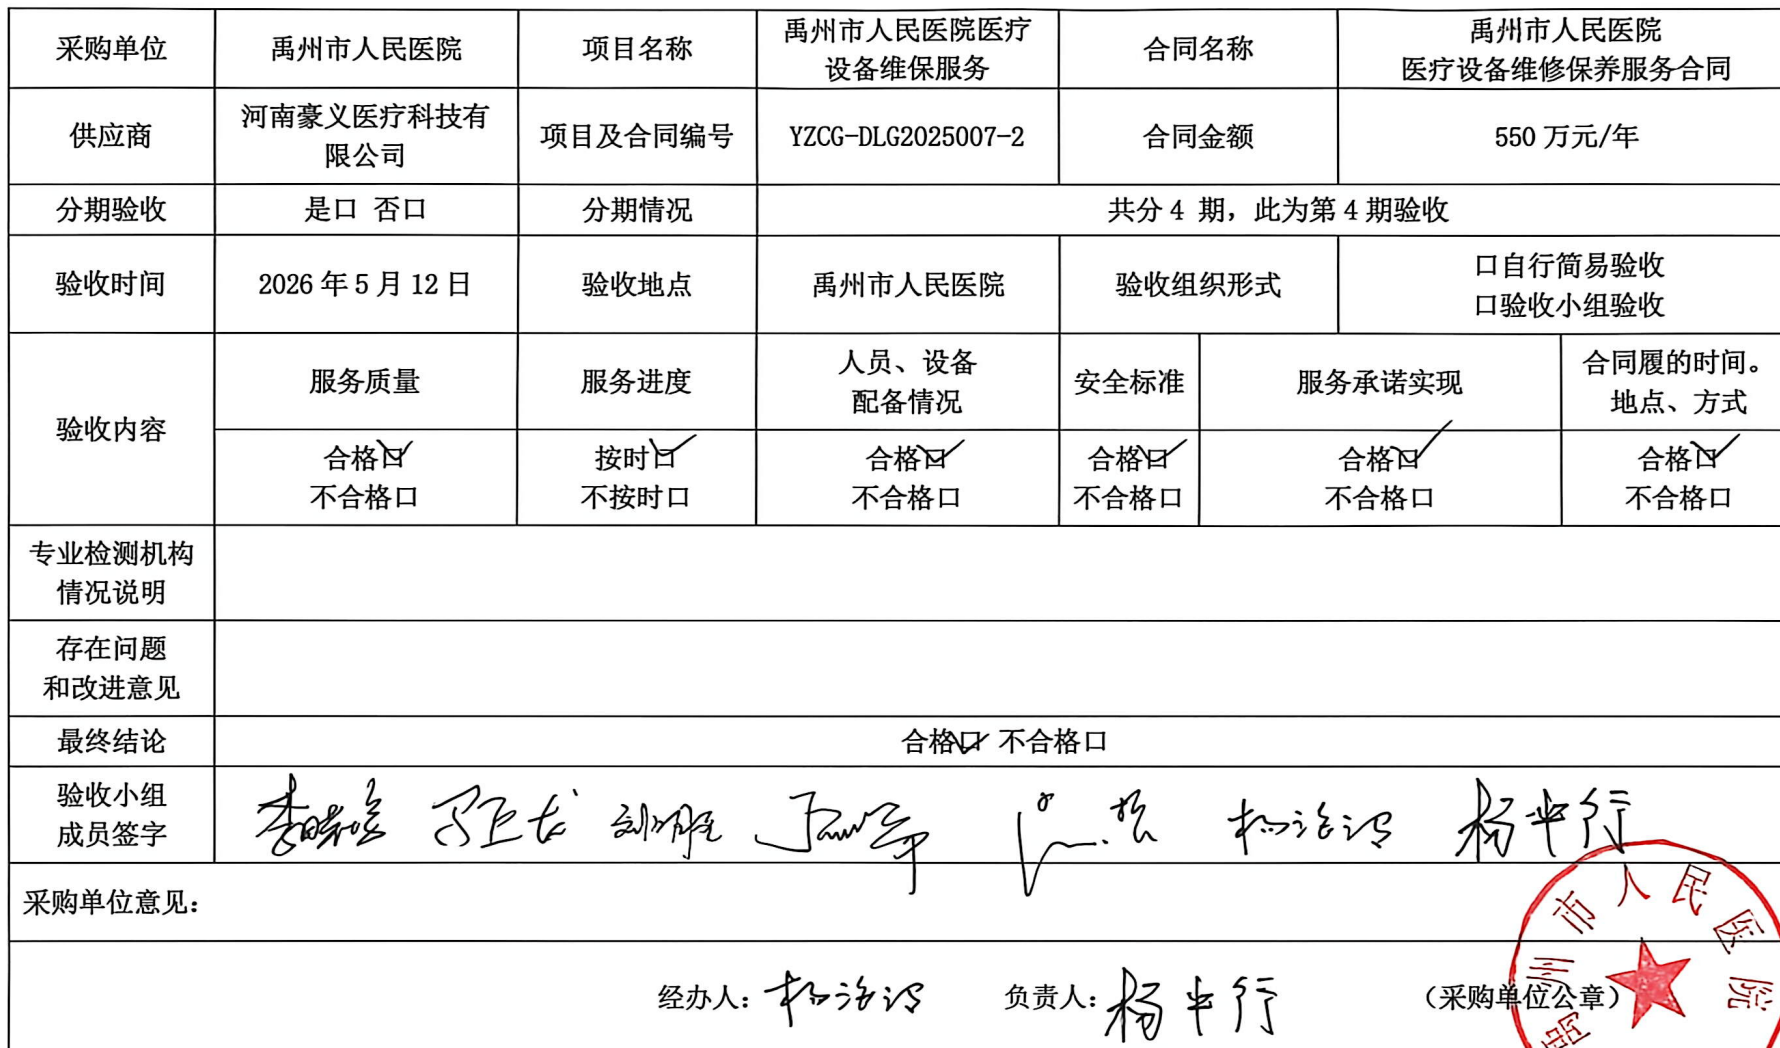 采购单位
禹州市人民医院
项目名称
禹州市人民医院医疗
设备维保服务
合同名称
禹州市人民医院
医疗设备维修保养服务合同
供应商
河南豪义医疗科技有
限公司
项目及合同编号
YZCG-DLG2025007-2
合同金额
550万元/年
分期验收
是口 否口
分期情况
共分4 期，此为第4期验收
验收时间
2026年5月12日
验收地点
禹州市人民医院
验收组织形式
口自行简易验收
口验收小组验收
验收内容
服务质量
服务进度
人员、设备
配备情况
安全标准
服务承诺实现
合同履的时间。
地点、方式
合格口
不合格口
按时口
不按时口
合格口
不合格口
合格口
不合格口
合格口
不合格口
合格口
不合格口
专业检测机构
情况说明
存在问题
和改进意见
最终结论
合格口 不合格口
验收小组
成员签字
采购单位意见：
经办人：
负责人：
（采购单位公章）
州市人民医院